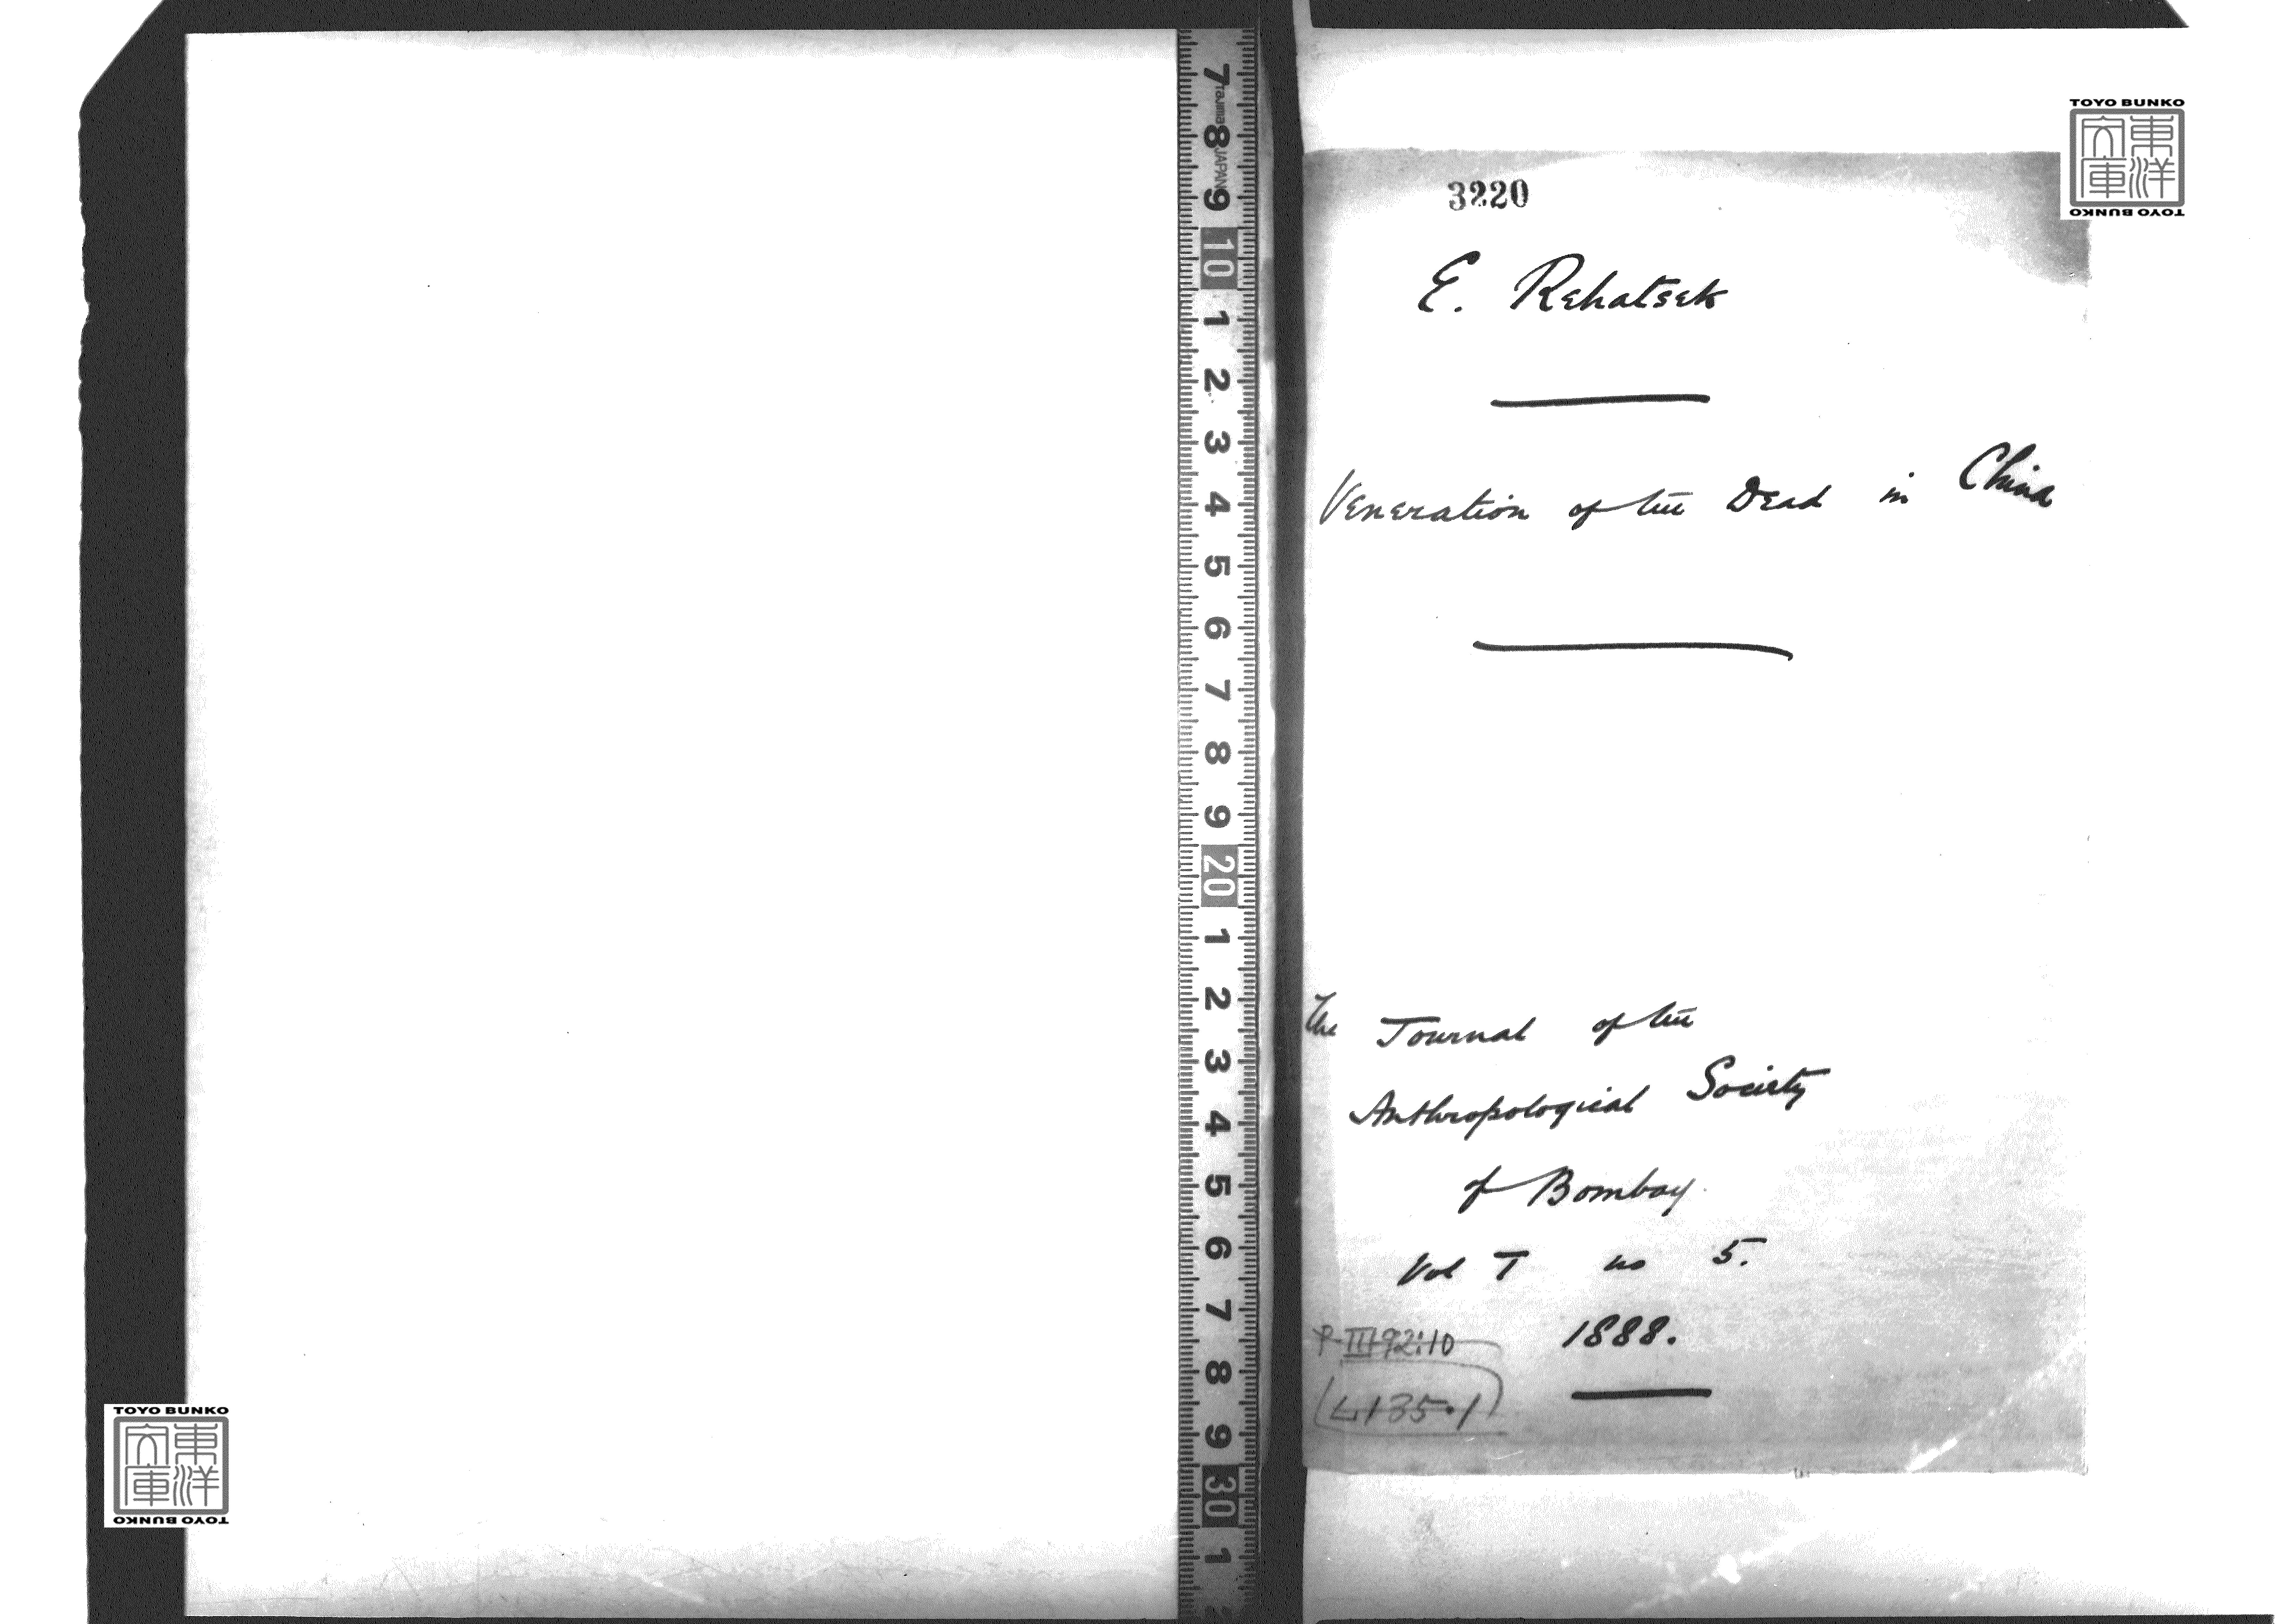 7 Tajima 8 JAPAN 9 10 1 2 3 4 5 6 7 8 9 20 1 2 3 4 5 6 7 8 9 30 1
TOYO BUNKO
東洋
文庫
TOYO BUNKO
3220
E. Rehatsek
Veneration of the Dead in China
The Journal of the
Anthropological Society
of Bombay.
Vol I no 5.
1888.
P-III-92:10
4135.1
TOYO BUNKO
東洋
文庫
TOYO BUNKO